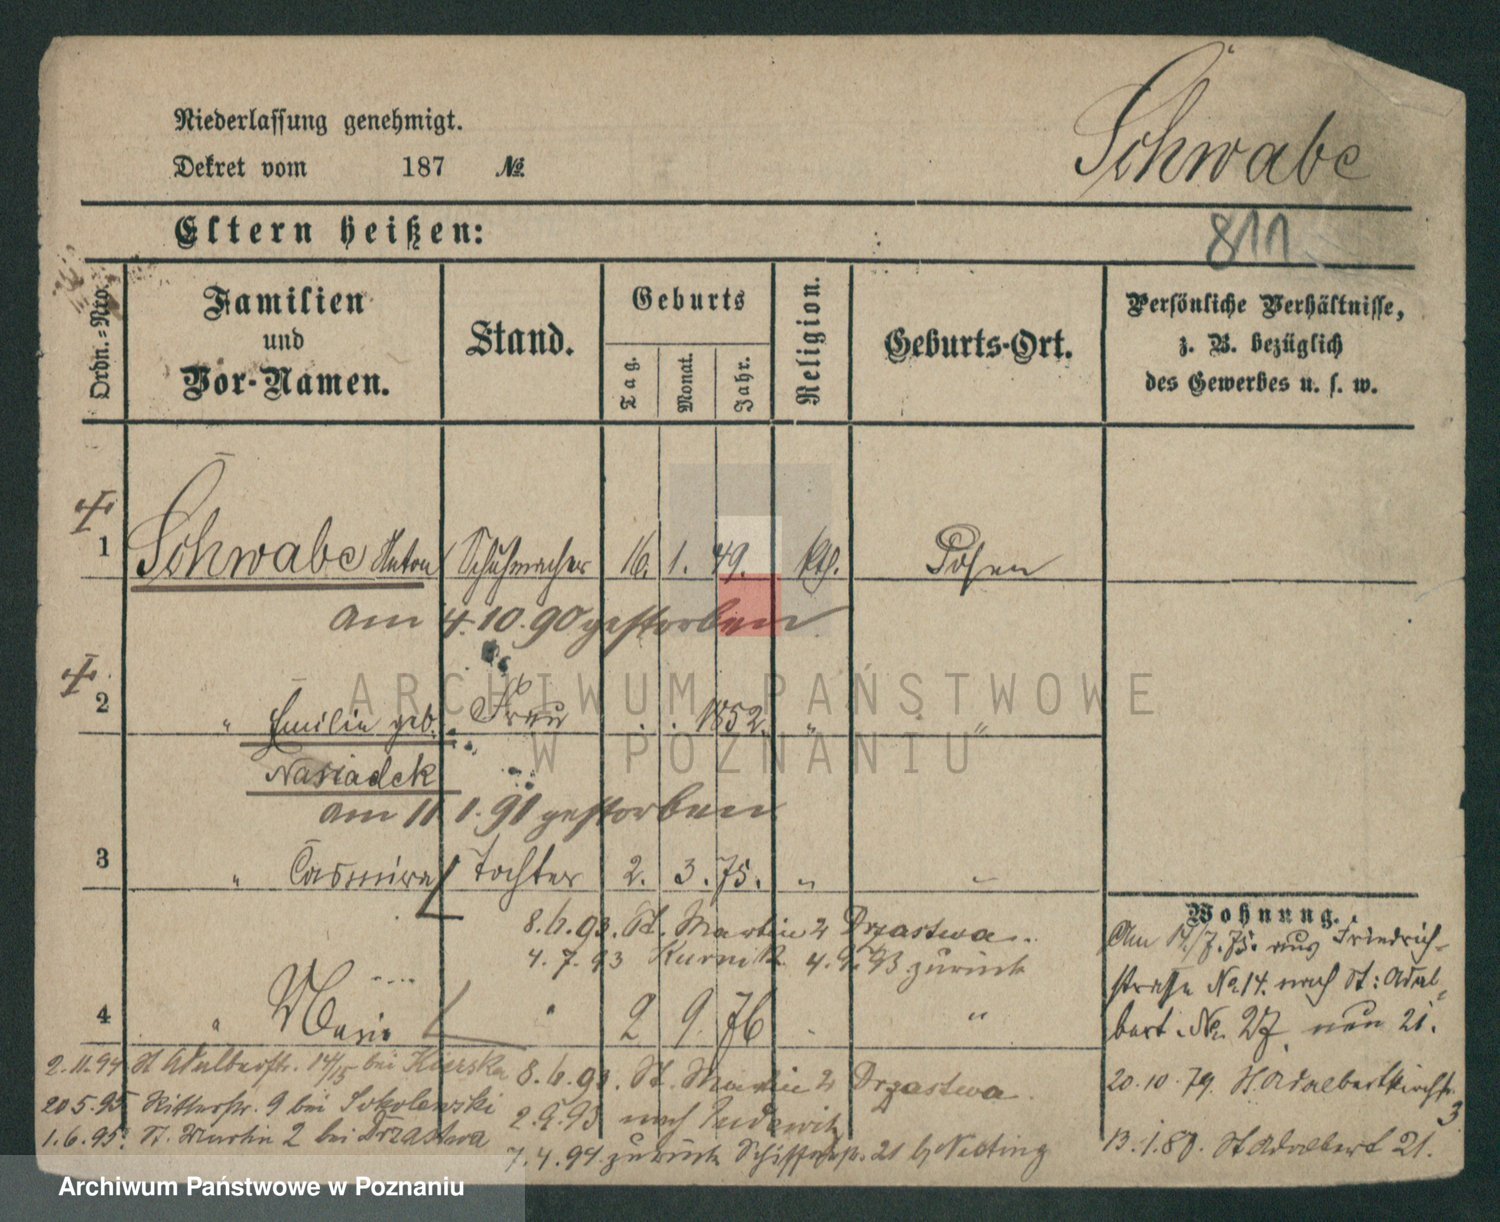 Niederlassung genehmigt.
Dekret vom 187 №
Schwabe
Eltern heißen:
811
Ordn.=Nro.
Familien
und
Vor-Namen.
Stand.
Geburts
Tag.
Monat.
Jahr.
Religion.
Geburts-Ort.
Persönliche Verhältnisse,
z. B. bezüglich
des Gewerbes u. s. w.
1 Schwabe Anton Schuhmacher 16. 1. 49. kth. Posen
am 4.10.90 gestorben
2 " Emilie geb. Frau . . 1852. " "
Nasiadek
am 11.1.91 gestorben
3 " Casmira Tochter 2. 3. 75. " "
8.6.93. St. Martin 2 Drzastwa.
4.7.93 Kurnik 4.9.93 zurück
4 " Marie " 2 9. 76 . "
8.6.93. St. Martin 2 Drzastwa.
2.9.93 nach
7.4.94. zurück 21 b/
2.11.94 St Adalbertstr. 14/15 bei
20.5.95 Ritterstr. 9 bei Sokolowski
1.6.95. St. Martin 2 bei Drzastwa
Wohnung.
Am 17/7.75. aus Friedrich-
strasse No 14. nach St: Adal-
bert. No. 27. nun 21.
20.10.79. St Adalbertkirchstr.
3.
13.1.80. St Adalbert 21.
ARCHIWUM PAŃSTWOWE
W POZNANIU
Archiwum Państwowe w Poznaniu